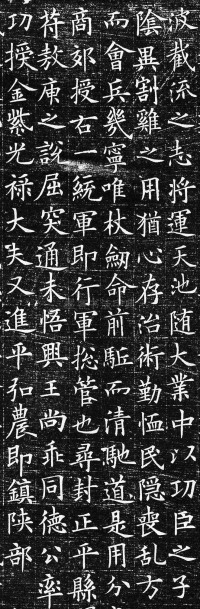 波截流之志将運天池随大業中以功臣之子
陰異割雞之用猶心存治術勤恤民隐喪乱方
而會兵幾寧唯杖劒命前駈而清馳道是用分
商郊授右一統軍即行軍揔管也尋封正平縣
符敖庾之說屈突通未悟興王尚乖同德公率
功授金紫光禄大夫又進平弘農即鎮陝部